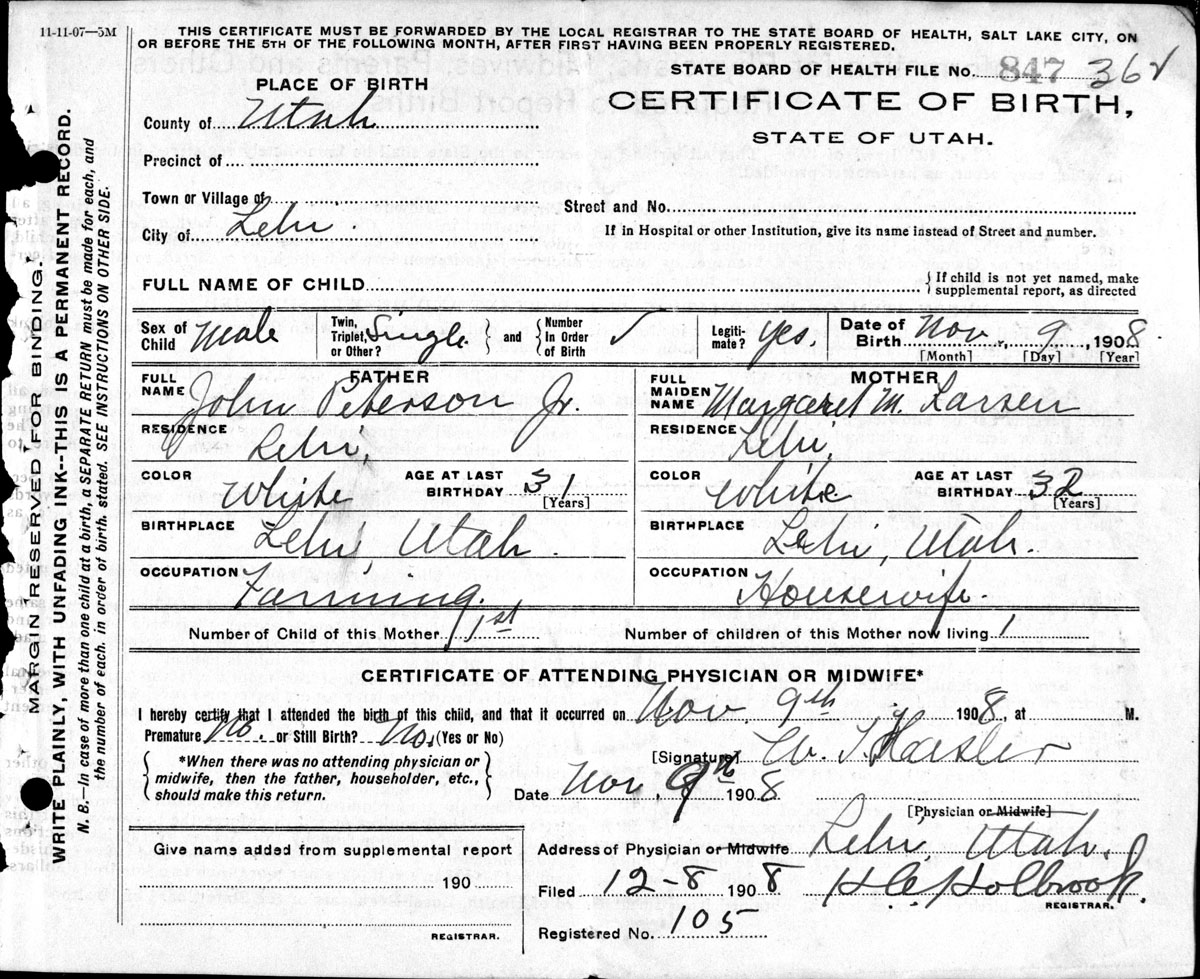 11-11-07—5M
THIS CERTIFICATE MUST BE FORWARDED BY THE LOCAL REGISTRAR TO THE STATE BOARD OF HEALTH, SALT LAKE CITY, ON
OR BEFORE THE 5TH OF THE FOLLOWING MONTH, AFTER FIRST HAVING BEEN PROPERLY REGISTERED.
STATE BOARD OF HEALTH FILE No. 847 362
PLACE OF BIRTH
CERTIFICATE OF BIRTH,
STATE OF UTAH.
County of Utah
Precinct of
Town or Village of
Street and No.
City of Lehi.
If in Hospital or other Institution, give its name instead of Street and number.
FULL NAME OF CHILD
{If child is not yet named, make
supplemental report, as directed
Sex of Child Male Twin, Triplet, or Other? Single } and { Number In Order of Birth ✓ Legitimate? Yes. Date of Birth Nov. 9, 1908
[Month] [Day] [Year]
FATHER
FULL NAME John Peterson Jr.
RESIDENCE Lehi,
COLOR White AGE AT LAST BIRTHDAY 31 [Years]
BIRTHPLACE Lehi, Utah.
OCCUPATION Farming.
MOTHER
FULL MAIDEN NAME Margaret M. Larsen
RESIDENCE Lehi,
COLOR White AGE AT LAST BIRTHDAY 32 [Years]
BIRTHPLACE Lehi, Utah.
OCCUPATION Housewife.
Number of Child of this Mother 1st Number of children of this Mother now living 1
CERTIFICATE OF ATTENDING PHYSICIAN OR MIDWIFE*
I hereby certify that I attended the birth of this child, and that it occurred on Nov. 9th 1908, at M.
Premature No. or Still Birth? No. (Yes or No)
*When there was no attending physician or
midwife, then the father, householder, etc.,
should make this return.
[Signature]
Date Nov. 9th 1908.
[Physician or Midwife]
Give name added from supplemental report
190
REGISTRAR.
Address of Physician or Midwife Lehi, Utah.
Filed 12-8 1908 Holbrook
REGISTRAR.
Registered No. 105
MARGIN RESERVED FOR BINDING.
WRITE PLAINLY, WITH UNFADING INK--THIS IS A PERMANENT RECORD.
N. B.—In case of more than one child at a birth, a SEPARATE RETURN must be made for each, and
the number of each, in order of birth, stated. SEE INSTRUCTIONS ON OTHER SIDE.